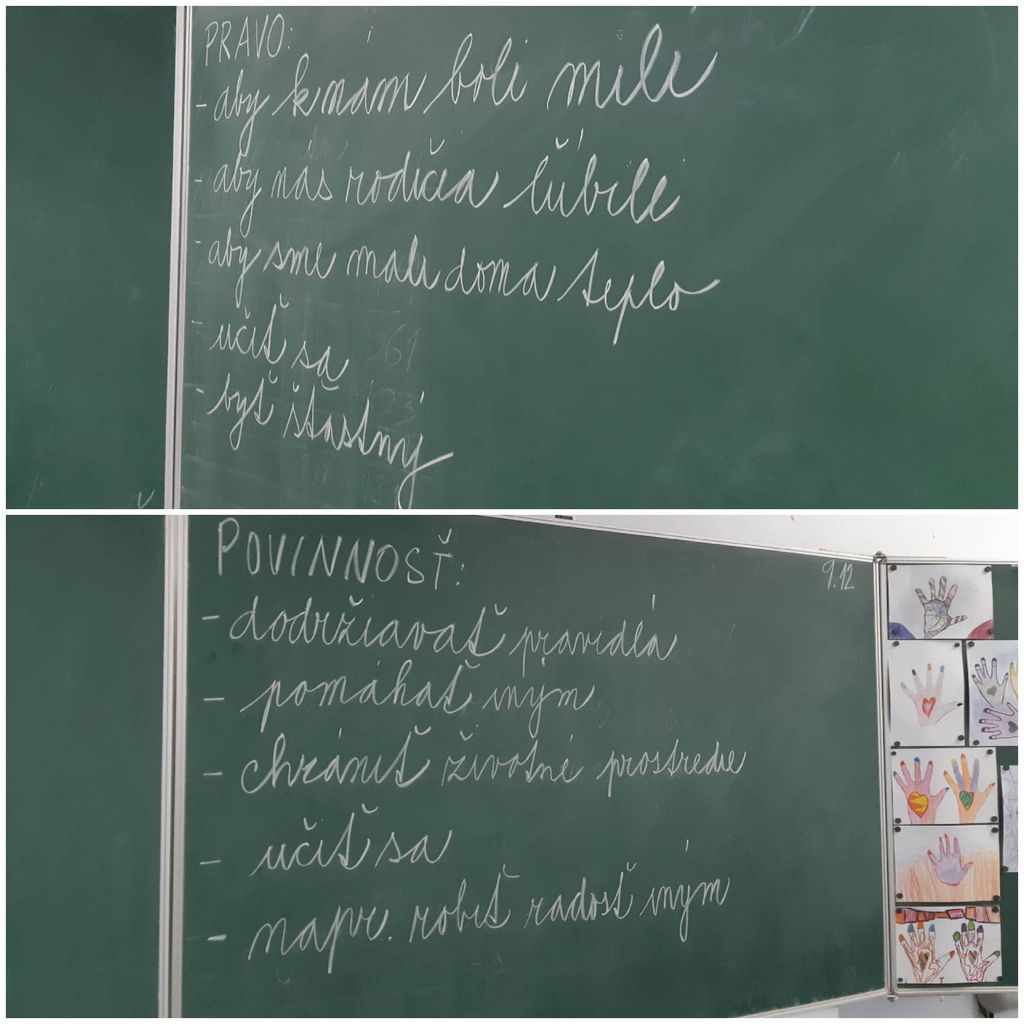 PRAVO:
- aby k nám boli milí
- aby nás rodičia ľúbili
- aby sme mali doma teplo
- učiť sa
- byť šťastný
POVINNOSŤ:
9.12
- dodržiavať pravidlá
- pomáhať iným
- chrániť životné prostredie
- učiť sa
- napr. robiť radosť iným